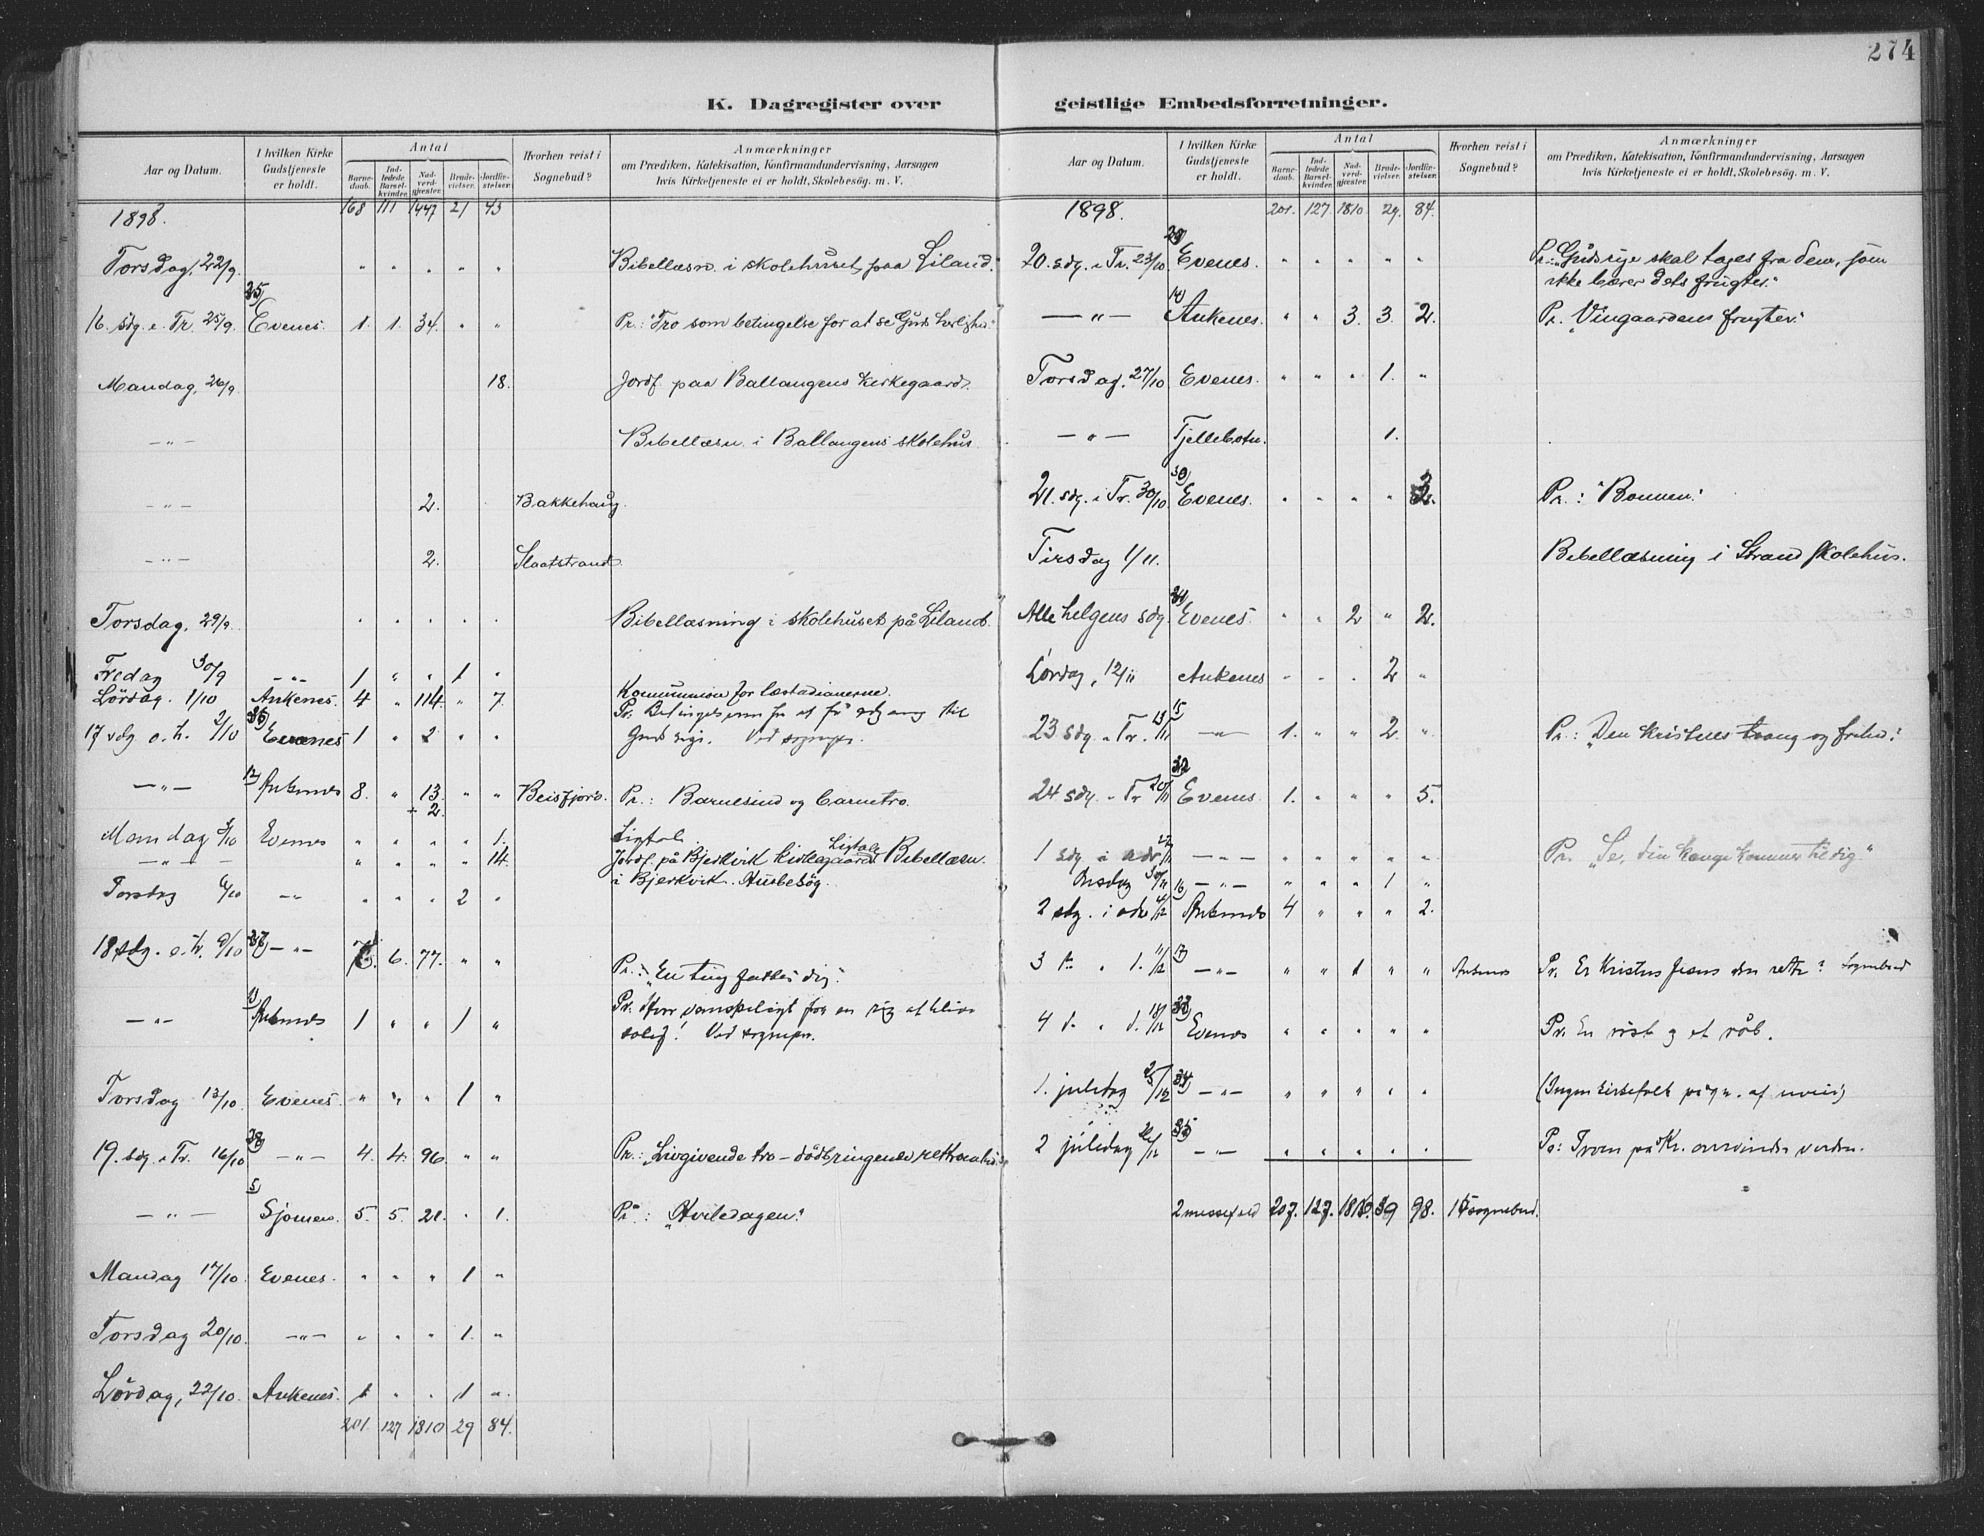 274
K. Dagregister over geistlige Embedsforretninger.
Aar og Datum.
I hvilken Kirke Gudstjeneste er holdt.
Antal
Barnedaab.
Indledede Barselkvinder.
Nadverdgjester.
Brudevielser.
Jordfæstelser.
Hvorhen reist i Sognebud?
Anmærkninger
om Prædiken, Katekisation, Konfirmandundervisning, Aarsagen
hvis Kirketjeneste ei er holdt, Skolebesøg. m. V.
1898. 168 111 1447 21 43
Torsdag, 22/9. " " " " " Bibellæsn. i skolehuset paa Liland.
16. sdg. e. Tr. 25/9. 35) Evenes. 1. 1. 34. " " Pr.: "Tro som betingelse for at se Guds herlighed."
Mandag, 26/9 18. Jordf. paa Ballangens kirkegaard.
— " — Bibellæsn. i Ballangens skolehus.
— " — 2. Bakkehaug.
— " — 2. Slaatstrand.
Torsdag, 29/9. " " " " " Bibellæsning i skolehuset på Liland.
Fredag 30/9 — " — 1 " " 1 "
Lördag. 1/10 Ankenes. 4 " 114. " 7. Kommunion for læstadianerne.
17 sdg e. tr. 2/10 36) Evenes 1 " 2 " " Pr. Betingelsen for at få adgang til
Guds rige. Ved sognepr.
— " — 12) Ankenes 8. " 13. " " Beisfjord. Pr.: Barnesind og barnetro.
+ 2.
Mandag 3/10 Evenes " " " " 1. Ligtale.
— " — " " " " 14. Jordf. på Bjerkvik kirkegaard Ligtale Bibellæsn.
i Bjerkvik. Husbesög.
Torsdag 6/10 — " — " " " 2 "
18 sdg. e. tr. 9/10 37) — " — 6. 77. " " Pr.: "En ting fattes dig."
— " — 13) Ankenes 1 " " 1 " Pr. Hvor vanskeligt for en rig at blive
salig! Ved sognepr.
Torsdag 13/10. Evenes. " " " 1 "
19. sdg e. Tr. 16/10 38) — " — 4. 4. 96. " " Pr.: "Livgivende tro –
— " — 5) Sjomen. 5. 5. 21. " 1. Pr.: "Hviledagen."
Mandag 17/10. Evenes. " " " 1 "
Torsdag 20/10. — " — " " " 1. "
Lördag, 22/10. Ankenes. 1 " " 1 "
201. 127 1810 29 84.
Aar og Datum.
I hvilken Kirke Gudstjeneste er holdt.
Antal
Barnedaab.
Indledede Barselkvinder.
Nadverdgjester.
Brudevielser.
Jordfæstelser.
Hvorhen reist i Sognebud?
Anmærkninger
om Prædiken, Katekisation, Konfirmandundervisning, Aarsagen
hvis Kirketjeneste ei er holdt, Skolebesøg. m. V.
1898. 201. 127. 1810. 29. 84.
20. sdg. e. Tr. 23/10 29) Evenes. " " " " " Pr.: "Guds rige skal tages fra dem, som
ikke bærer dets frugter."
— " — 14) Ankenes. " " 3. 3. 2. Pr. "Vingaardens frugter."
Torsdag, 27/10 Evenes. " " " 1. "
— " — Tjellebotn. 1.
21. sdg. e. Tr. 30/10 30) Evenes. " " " " Pr.: "Bönnen."
Tirsdag 1/11. Bibellæsning i Strand skolehus.
Alle helgens sdg 31) Evenes. " " 2 " 2.
Lördag, 12/11 Ankenes " " " 2 "
23 sdg. e. Tr. 13/11 15) — " — 1. " " 2. " Pr.: "Den kristnes trang og frihed."
24 sdg. e. Tr 20/11 32) Evenes. 1. " " " 5.
1 sdg i adv 27/11 — " — " " " " " Pr. "Se, din konge kommer til dig"
Onsdag 30/11 — " — " " " 1 "
2 sdg. i adv 4/12 16) Ankenes 4 " " " 2.
3 d. " d. 11/12 17) — " — " " 1 " " Ankenes Pr. Er Kristus Jesus den rette? Sognebud
4 d. " d. 18/12 33) Evenes " " " " " Pr. En röst og et råb.
1. juledag 25/12 34) — " — " " " " " (Ingen kirkefolk på gr. af uveir)
2 juledag 26/12 35) — " — " " " " " Pr: Troen på Kr. overvinder verden.
2 messefald 207. 127. 1816. 39 98. sognebud.